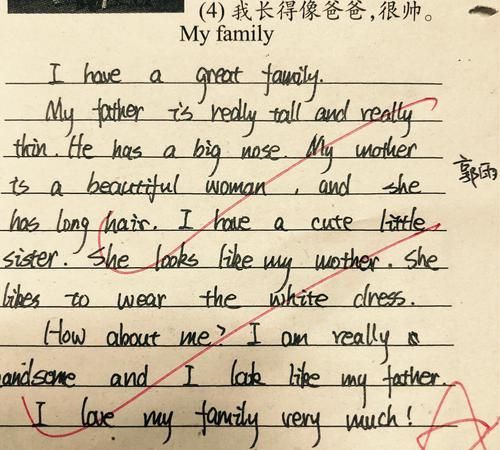 (4) 我长得像爸爸，很帅。
My family
I have a great family.
My father is really tall and really
thin. He has a big nose. My mother
is a beautiful woman , and she
has long hair. I have a cute little
sister. She looks like my mother. She
likes to wear the white dress.
How about me? I am really
andsome and I look like my father.
I love my family very much!
郭雨
A